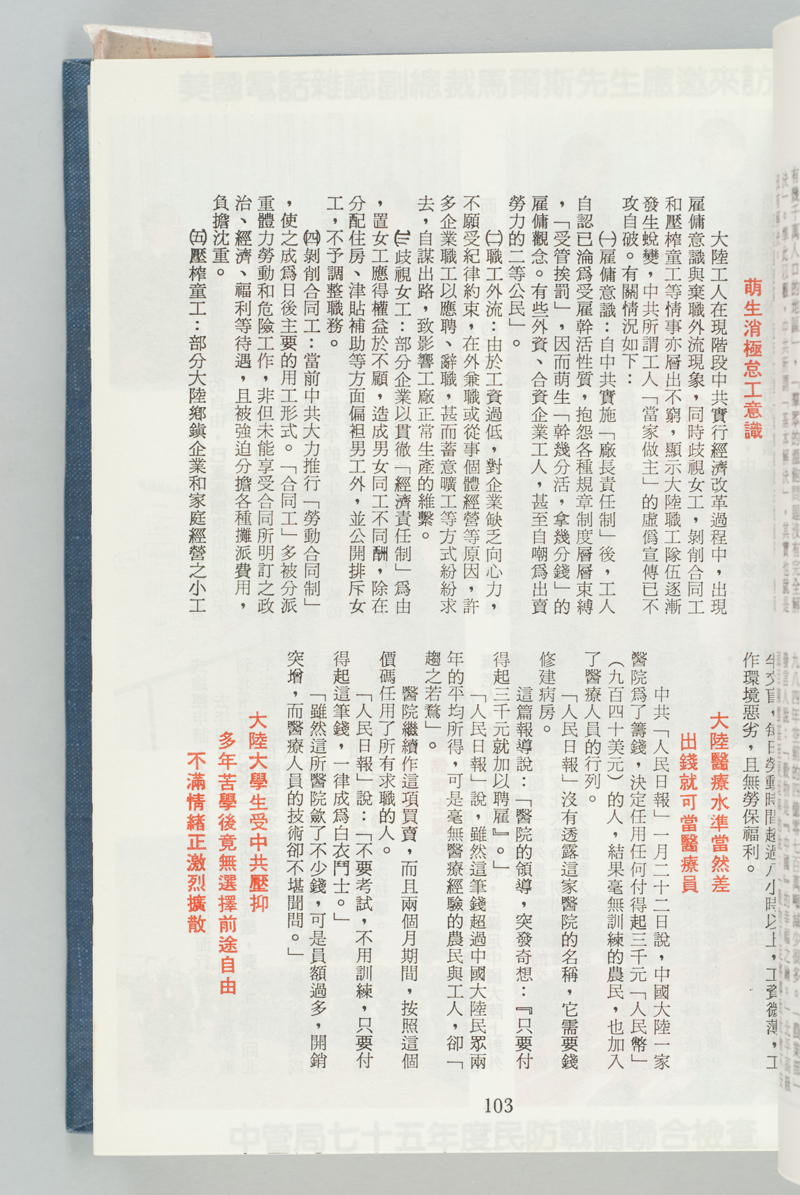 萌生消極怠工意識
大陸工人在現階段中共實行經濟改革過程中，出現
雇傭意識與棄職外流現象，同時歧視女工，剝削合同工
和壓榨童工等情事亦層出不窮，顯示大陸職工隊伍逐漸
發生蛻變，中共所謂工人「當家做主」的虛僞宣傳已不
攻自破。有關情況如下：
㈠雇傭意識：自中共實施「廠長責任制」後，工人
自認已淪爲受雇幹活性質，抱怨各種規章制度層層束縛
，「受管挨罰」，因而萌生「幹幾分活，拿幾分錢」的
雇傭觀念。有些外資、合資企業工人，甚至自嘲爲出賣
勞力的二等公民」。
㈡職工外流：由於工資過低，對企業缺乏向心力，
不願受紀律約束，在外兼職或從事個體經營等原因，許
多企業職工以應聘、辭職，甚而蓄意曠工等方式紛紛求
去，自謀出路，致影響工廠正常生產的維繫。
㈢歧視女工：部分企業以貫徹「經濟責任制」爲由
，置女工應得權益於不顧，造成男女同工不同酬，除在
分配住房、津貼補助等方面偏袒男工外，並公開排斥女
工，不予調整職務。
㈣剝削合同工：當前中共大力推行「勞動合同制」
，使之成爲日後主要的用工形式。「合同工」多被分派
重體力勞動和危險工作，非但未能享受合同所明訂之政
治、經濟、福利等待遇，且被強迫分擔各種攤派費用，
負擔沈重。
㈤壓榨童工：部分大陸鄉鎭企業和家庭經營之小工
，每日勞動時間超過八小時以上，工資微薄，工
作環境惡劣，且無勞保福利。
大陸醫療水準當然差
出錢就可當醫療員
中共「人民日報」一月二十二日說，中國大陸一家
醫院爲了籌錢，決定任用任何付得起三千元「人民幣」
（九百四十美元）的人，結果毫無訓練的農民，也加入
了醫療人員的行列。
「人民日報」沒有透露這家醫院的名稱，它需要錢
修建病房。
這篇報導說：「醫院的領導，突發奇想：『只要付
得起三千元就加以聘雇』。」
「人民日報」說，雖然這筆錢超過中國大陸民眾兩
年的平均所得，可是毫無醫療經驗的農民與工人，卻「
趨之若鶩」。
醫院繼續作這項買賣，而且兩個月期間，按照這個
價碼任用了所有求職的人。
「人民日報」說：「不要考試，不用訓練，只要付
得起這筆錢，一律成爲白衣鬥士。」
「雖然這所醫院斂了不少錢，可是員額過多，開銷
突增，而醫療人員的技術卻不堪聞問。」
大陸大學生受中共壓抑
多年苦學後竟無選擇前途自由
不滿情緒正激烈擴散
103